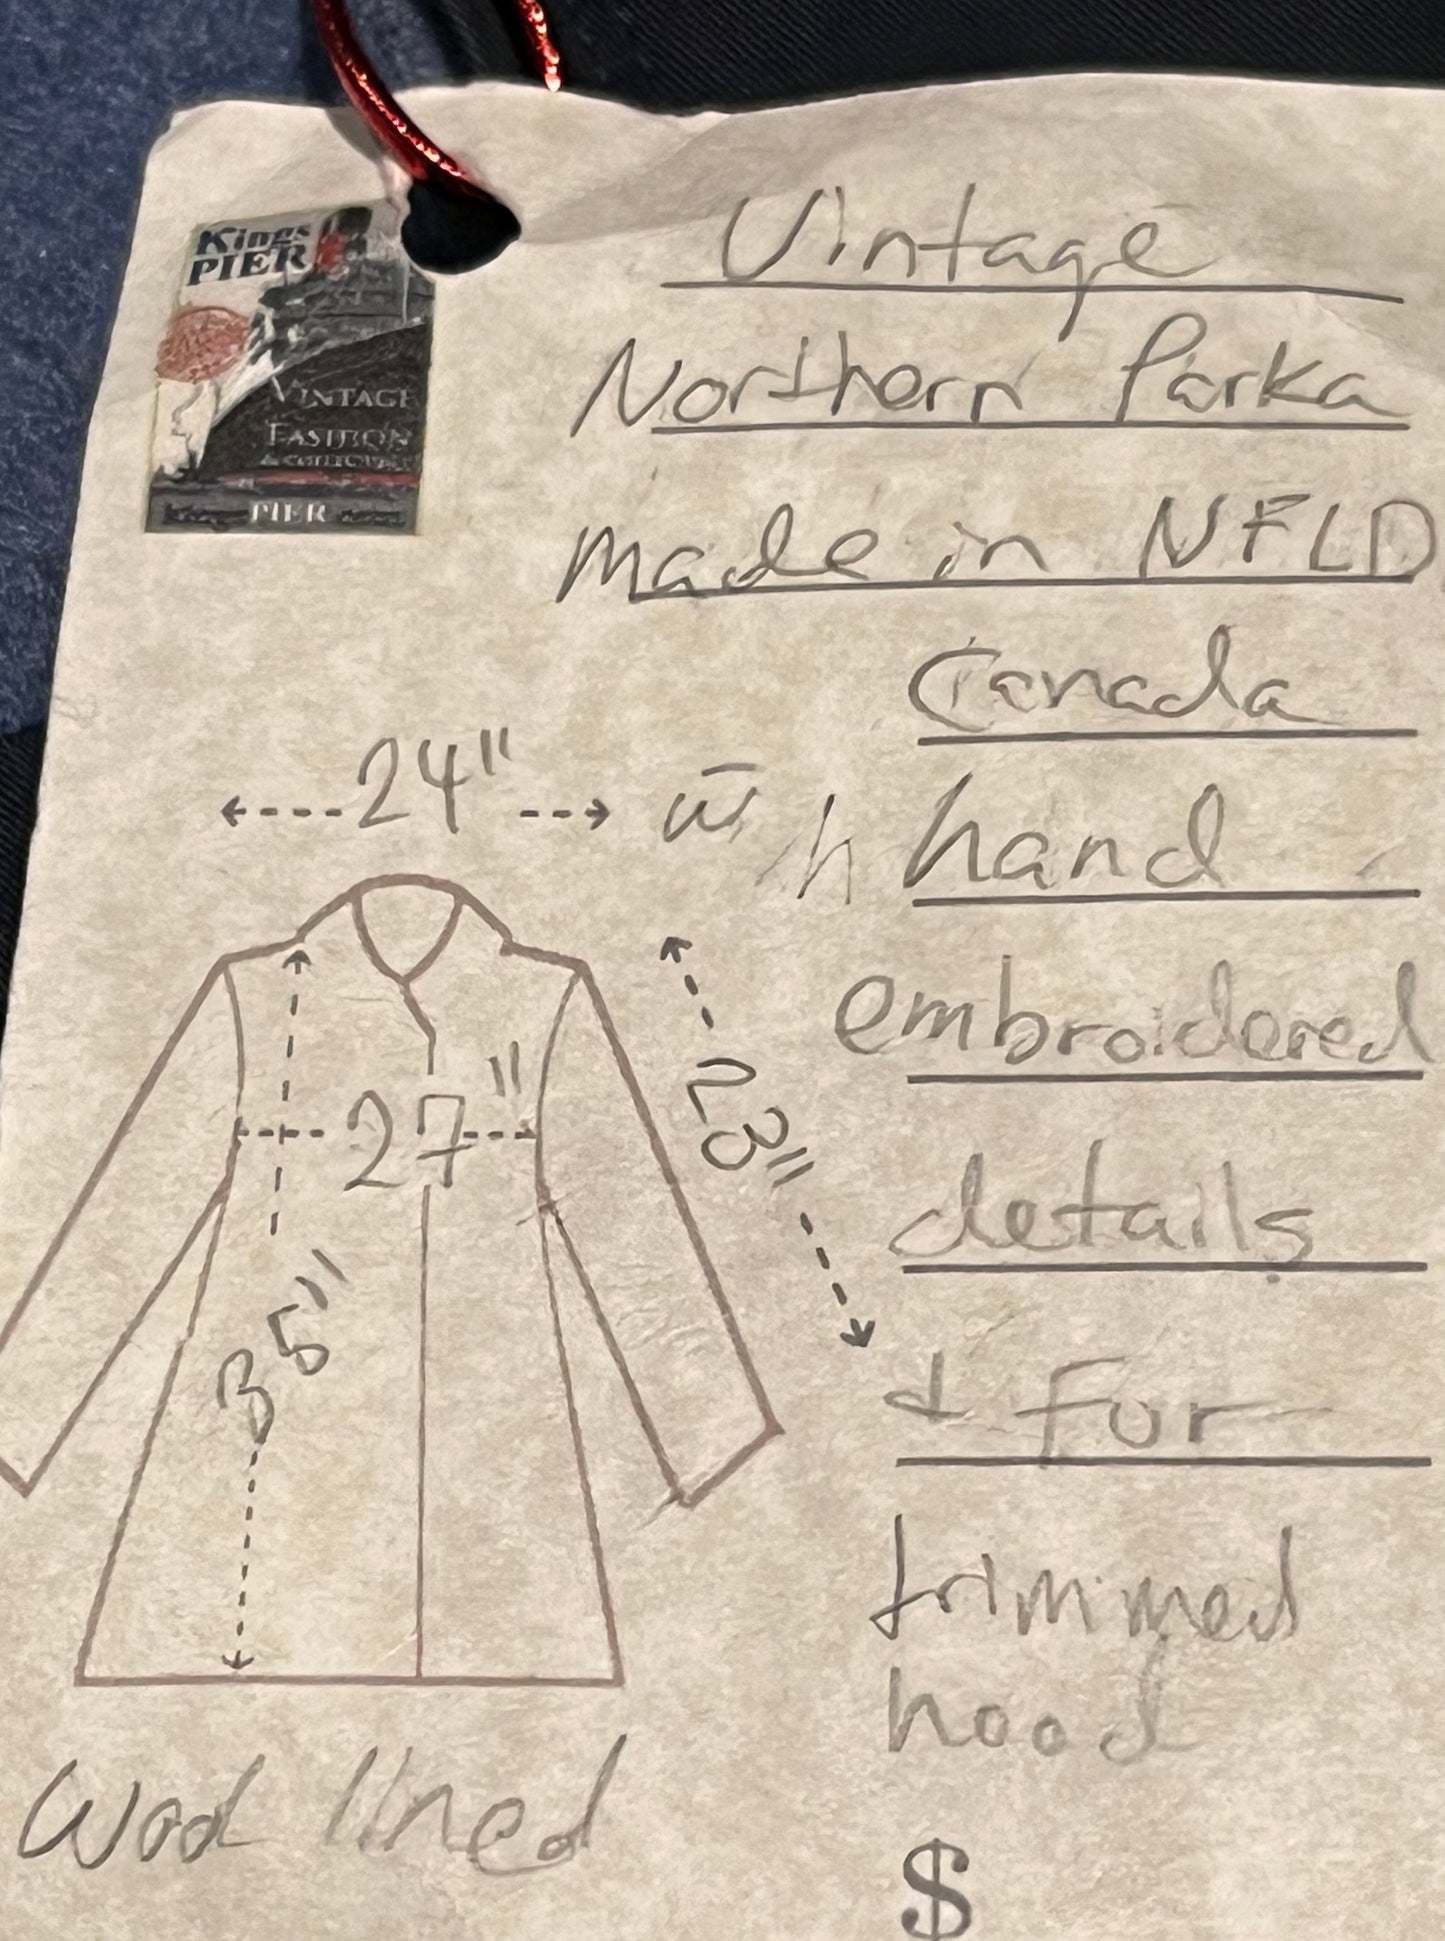 Kings
PIER
VINTAGE
FASHION
PIER
Vintage
Northern Parka
made in NFLD
Canada
24"
w̄ hand
embroidered
23"
27"
details
35"
+ Fur
trimmed
hood
Wool lined
$